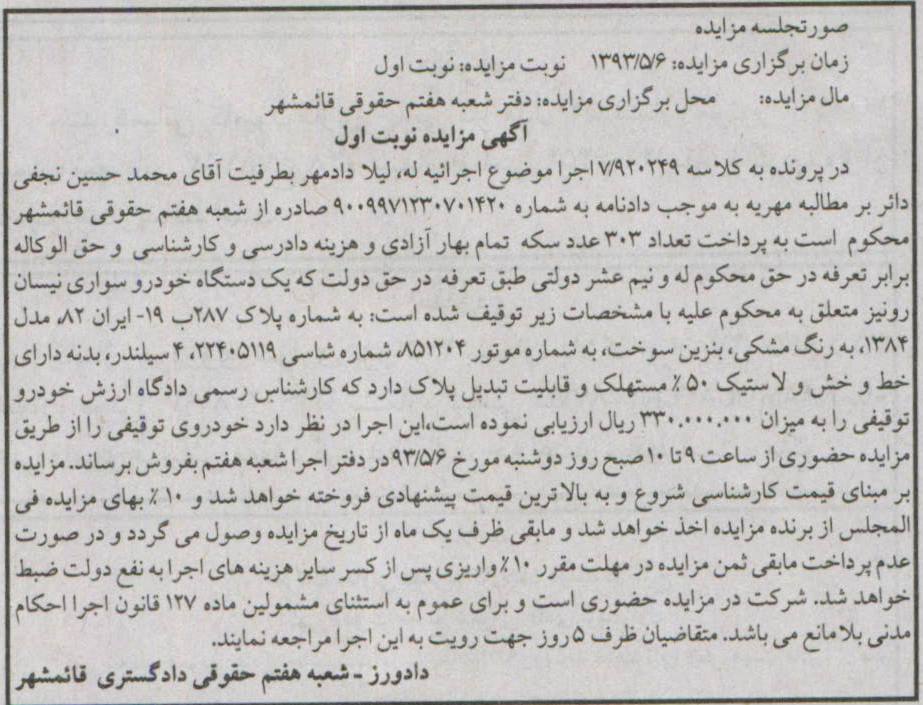 صورتجلسه مزایده
زمان برگزاری مزایده: ۱۳۹۳/۵/۶ نوبت مزایده: نوبت اول
مال مزایده: محل برگزاری مزایده: دفتر شعبه هفتم حقوقی قائمشهر
آگهی مزایده نوبت اول
در پرونده به کلاسه ۷/۹۲۰۲۴۹ اجرا موضوع اجرائیه له، لیلا دادمهر بطرفیت آقای محمد حسین نجفی
دائر بر مطالبه مهریه به موجب دادنامه به شماره ۹۰۰۹۹۷۱۲۳۰۷۰۱۴۲۰ صادره از شعبه هفتم حقوقی قائمشهر
محکوم است به پرداخت تعداد ۳۰۳ عدد سکه تمام بهار آزادی و هزینه دادرسی و کارشناسی و حق الوکاله
برابر تعرفه در حق محکوم له و نیم عشر دولتی طبق تعرفه در حق دولت که یک دستگاه خودرو سواری نیسان
رونیز متعلق به محکوم علیه با مشخصات زیر توقیف شده است: به شماره پلاک ۲۸۷ب ۱۹- ایران ۸۲، مدل
۱۳۸۴، به رنگ مشکی، بنزین سوخت، به شماره موتور ۸۵۱۲۰۴، شماره شاسی ۲۲۴۰۵۱۱۹، ۴ سیلندر، بدنه دارای
خط و خش و لاستیک ۵۰٪ مستهلک و قابلیت تبدیل پلاک دارد که کارشناس رسمی دادگاه ارزش خودرو
توقیفی را به میزان ۳۳۰.۰۰۰.۰۰۰ ریال ارزیابی نموده است،این اجرا در نظر دارد خودروی توقیفی را از طریق
مزایده حضوری از ساعت ۹ تا ۱۰ صبح روز دوشنبه مورخ ۹۳/۵/۶ در دفتر اجرا شعبه هفتم بفروش برساند. مزایده
بر مبنای قیمت کارشناسی شروع و به بالاترین قیمت پیشنهادی فروخته خواهد شد و ۱۰٪ بهای مزایده فی
المجلس از برنده مزایده اخذ خواهد شد و مابقی ظرف یک ماه از تاریخ مزایده وصول می گردد و در صورت
عدم پرداخت مابقی ثمن مزایده در مهلت مقرر ۱۰٪ واریزی پس از کسر سایر هزینه های اجرا به نفع دولت ضبط
خواهد شد. شرکت در مزایده حضوری است و برای عموم به استثنای مشمولین ماده ۱۲۷ قانون اجرا احکام
مدنی بلامانع می باشد. متقاضیان ظرف ۵ روز جهت رویت به این اجرا مراجعه نمایند.
دادورز ـ شعبه هفتم حقوقی دادگستری قائمشهر